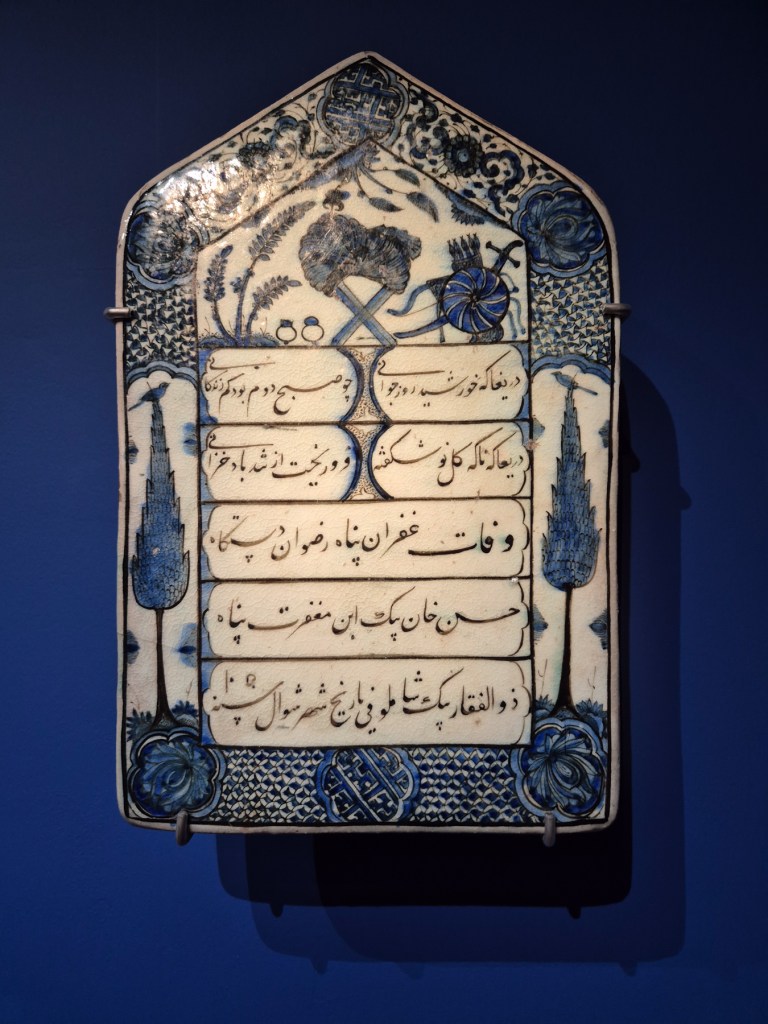 دریغا که خورشید روز جوانی چو صبح دوم بود کم زندگانی
دریغا که ناگه گل نوشکفته فرو ریخت از تندباد خزانی
وفات غفران پناه رضوان دستگاه
حسن خان بیک ابن مغفرت پناه
ذوالفقار بیک شاملو فی تاریخ شهر شوال سنه